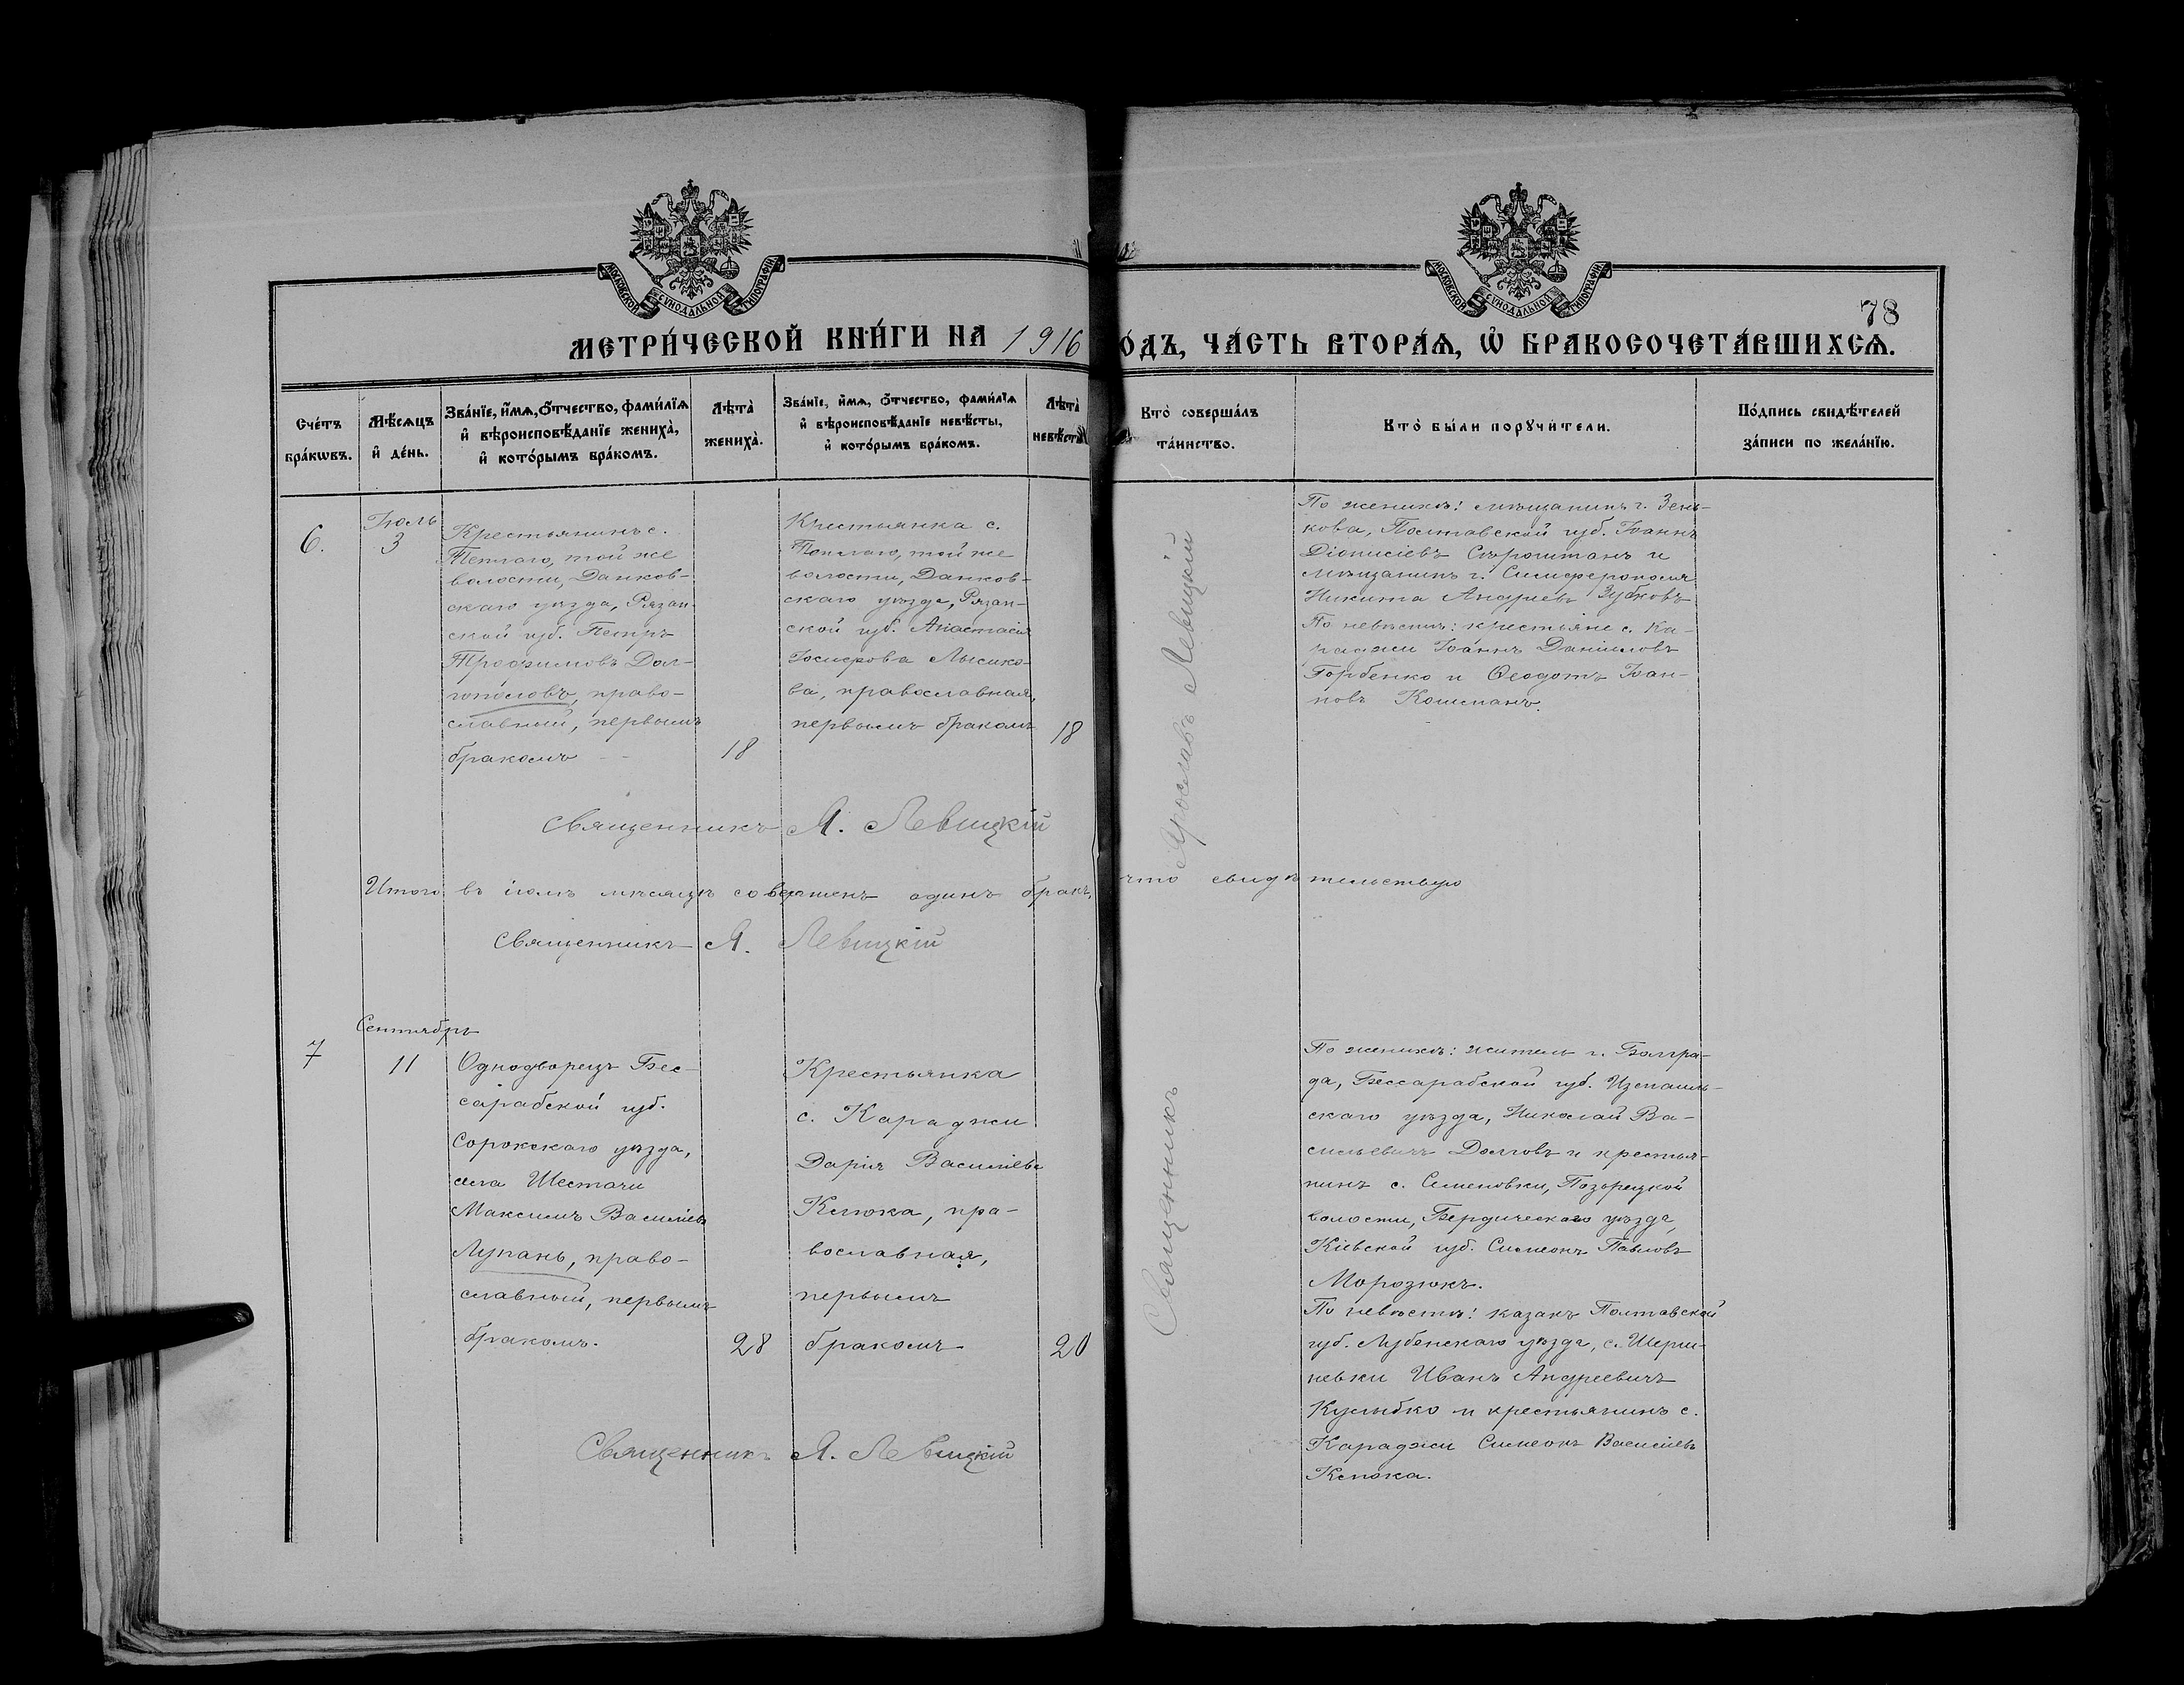 МОСКОВСКОЙ СУНОДАЛЬНОЙ ТИПОГРАФІИ
МОСКОВСКОЙ СУНОДАЛЬНОЙ ТИПОГРАФІИ
78
МЕТРИ́ЧЕСКОЙ КНИ́ГИ НА 1916
О́ДЪ, ЧА́СТЬ ВТОРА́Ѧ, Ѡ҆ БРАКОСОЧЕТА́ВШИХСѦ.
Сче́тъ бра́кѡвъ.
Мѣ́сѧцъ и҆ де́нь.
Зва́нїе, и҆́мѧ, ѻ҆́тчество, фами́лїѧ и҆ вѣроисповѣ́данїе жениха̀, и҆ кото́рымъ бра́комъ.
Лѣта̀ жениха̀.
Зва́нїе, и҆́мѧ, ѻ҆́тчество, фами́лїѧ и҆ вѣроисповѣ́данїе невѣ́сты, и҆ кото́рымъ бра́комъ.
Лѣта̀ невѣ́сты
Кто̀ соверша́лъ та́инство.
Кто̀ бы́ли порꙋчи́тели.
По́дпись свидѣ́телей за́писи по жела́нїю.
6.
Іюль
3
Крестьянинъ с.
Теплаго, той же
волости, Данков-
скаго уѣзда, Рязан-
ской губ. Петръ
Трофимовъ Дол-
гополовъ, право-
славный, первымъ
бракомъ
18
Крестьянка с.
Теплаго, той же
волости, Данков-
скаго уѣзда, Рязан-
ской губ. Анастасія
Іосифова Лысико-
ва, православная,
первымъ бракомъ
18
Священникъ Ярославъ Левицкій
По женихѣ: мѣщанинъ г. Зень-
кова, Полтавской губ. Іоаннъ
Діонисіевъ и
мѣщанинъ г. Симферополя
Никита Андреевъ Зубковъ
По невѣстѣ: крестьяне с. Ка-
раджи Іоаннъ Даніиловъ
Горбенко и Ѳеодотъ Іоан-
новъ
Священникъ Я. Левицкій
Итого въ іюлѣ мѣсяцѣ совершенъ одинъ бракъ, что свидѣтельствую
Священникъ Я. Левицкій
7
Сентябрь
11
Однодворецъ Бес-
сарабской губ.
Сорокскаго уѣзда,
села Шестачи
Максимъ Василіевъ
Лупанъ, право-
славный, первымъ
бракомъ.
28
Крестьянка
с. Караджи
Дарія Василіева
Клюка, пра-
вославная,
первымъ
бракомъ
20
По женихѣ: житель г. Болгра-
да, Бессарабской губ. Измаиль-
скаго уѣзда, Николай Ва-
сильевичъ Долговъ и крестья-
нинъ с. Семеновки,
волости, Бердическаго уѣзда,
Кіевской губ. Симеонъ Павловъ
Морозюкъ.
По невѣстѣ: казакъ Полтавской
губ. Лубенскаго уѣзда, с.
Иванъ Андреевичъ
и крестьянинъ с.
Караджи Симеонъ Василіевъ
Клюка.
Священникъ Я. Левицкій